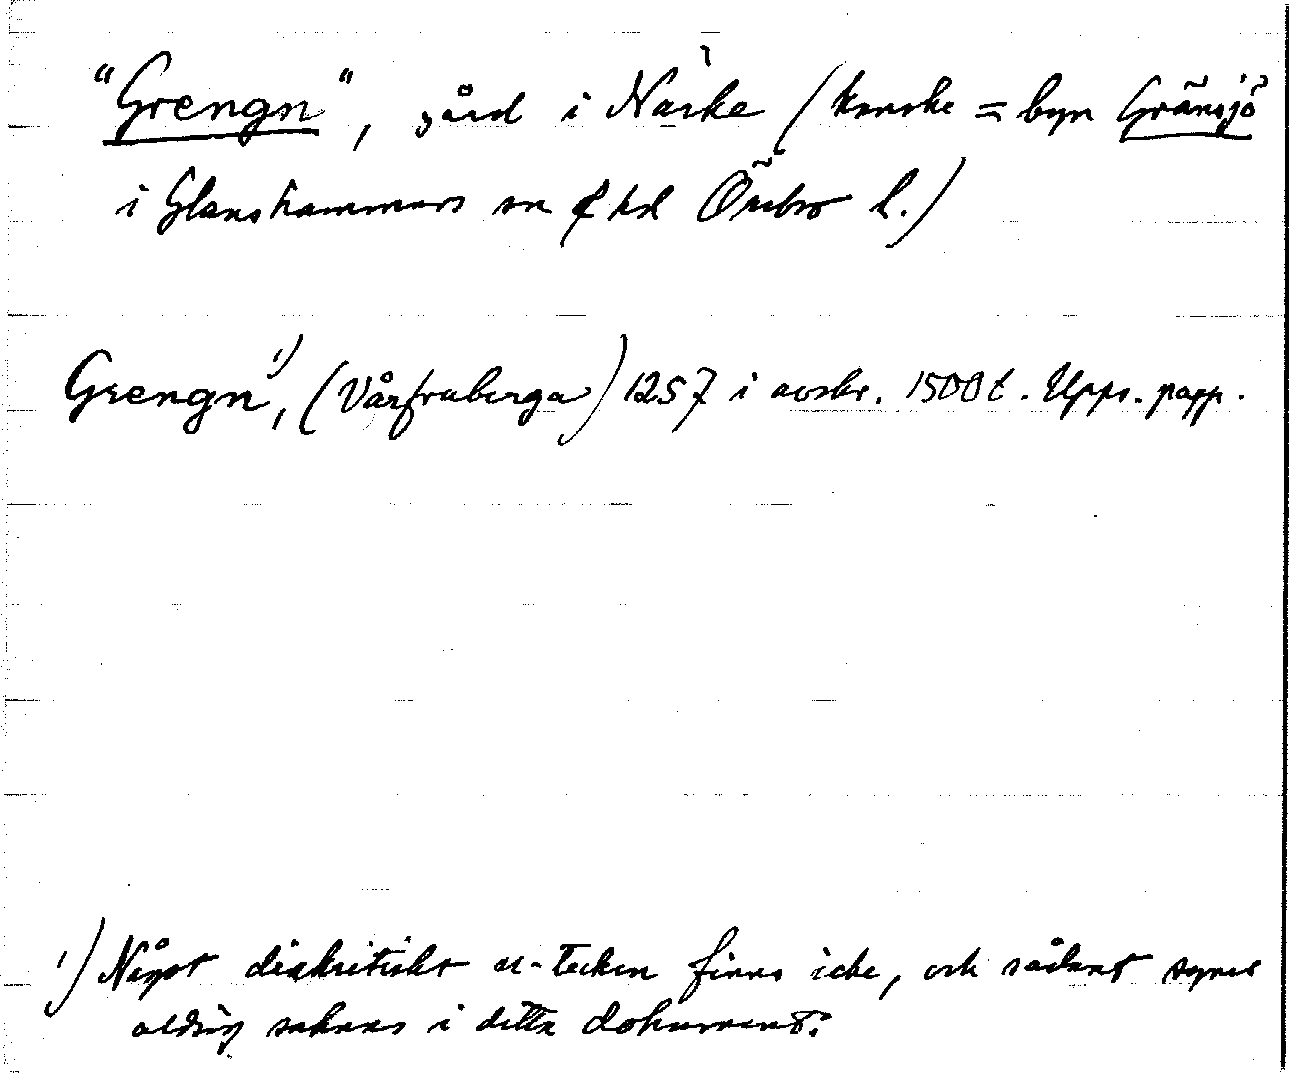 "Grengn", gård i Närke (kanske = byn Gränsjö
i Glanshammars sn o hd Örebro l.)
Grengn¹⁾, (Vårfruberga) 1257 i avskr. 1500 t. Upps. papp.
¹⁾ Något diakritiskt u-tecken finns icke, och sådant synes
aldrig saknas i detta dokument.